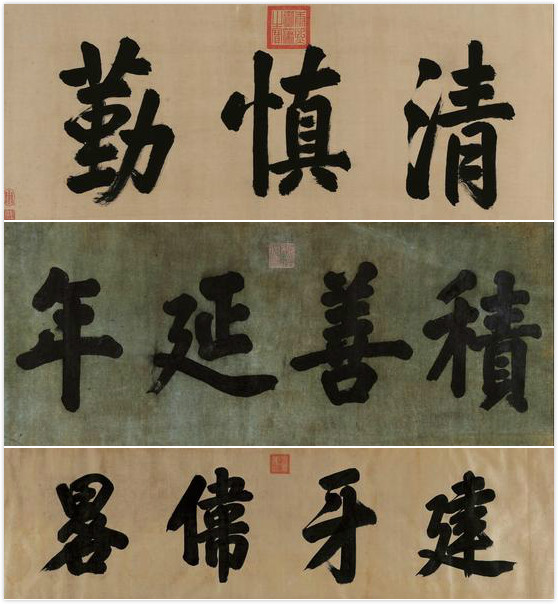 清慎勤
積善延年
建牙偉畧